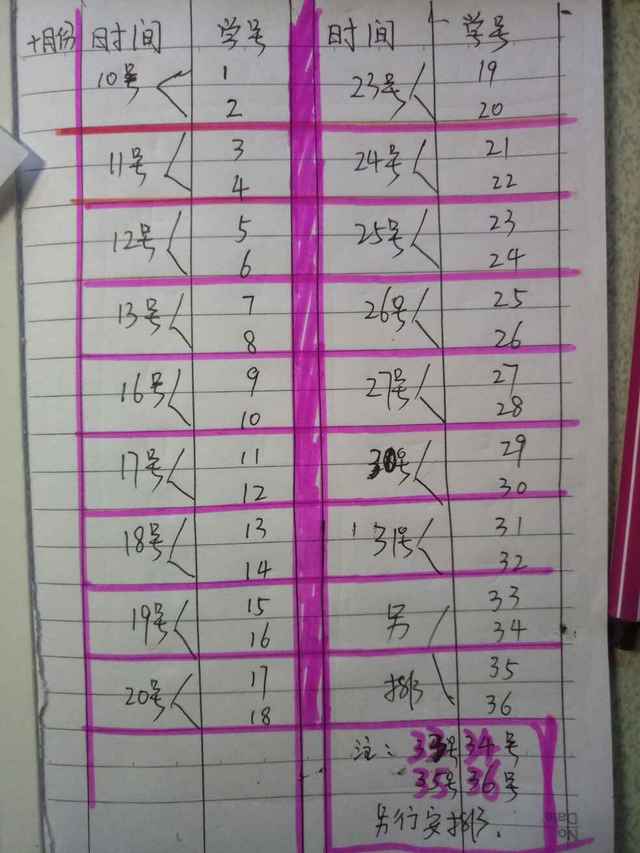 十月份 时间 学号 时间 学号
10号 1 23号 19
2 20
11号 3 24号 21
4 22
12号 5 25号 23
6 24
13号 7 26号 25
8 26
16号 9 27号 27
10 28
17号 11 30号 29
12 30
18号 13 31号 31
14 32
19号 15 另 33
16 34
20号 17 排 35
18 36
注: 33号 34号
35号 36号
另行安排.
No
Date